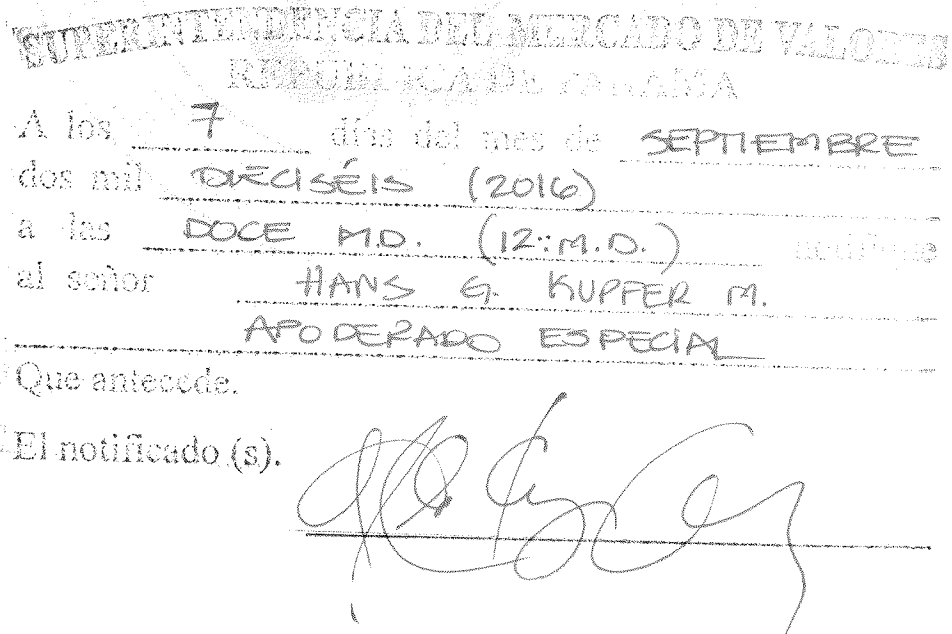 SUPERINTENDENCIA DEL MERCADO DE VALORES
REPÚBLICA DE PANAMA
A los 7 días del mes de SEPTIEMBRE
dos mil DIECISÉIS (2016)
a las DOCE M.D. (12::M.D.) notifique
al señor HANS G. KUPFER M.
APODERADO ESPECIAL
Que antecede.
El notificado (s).